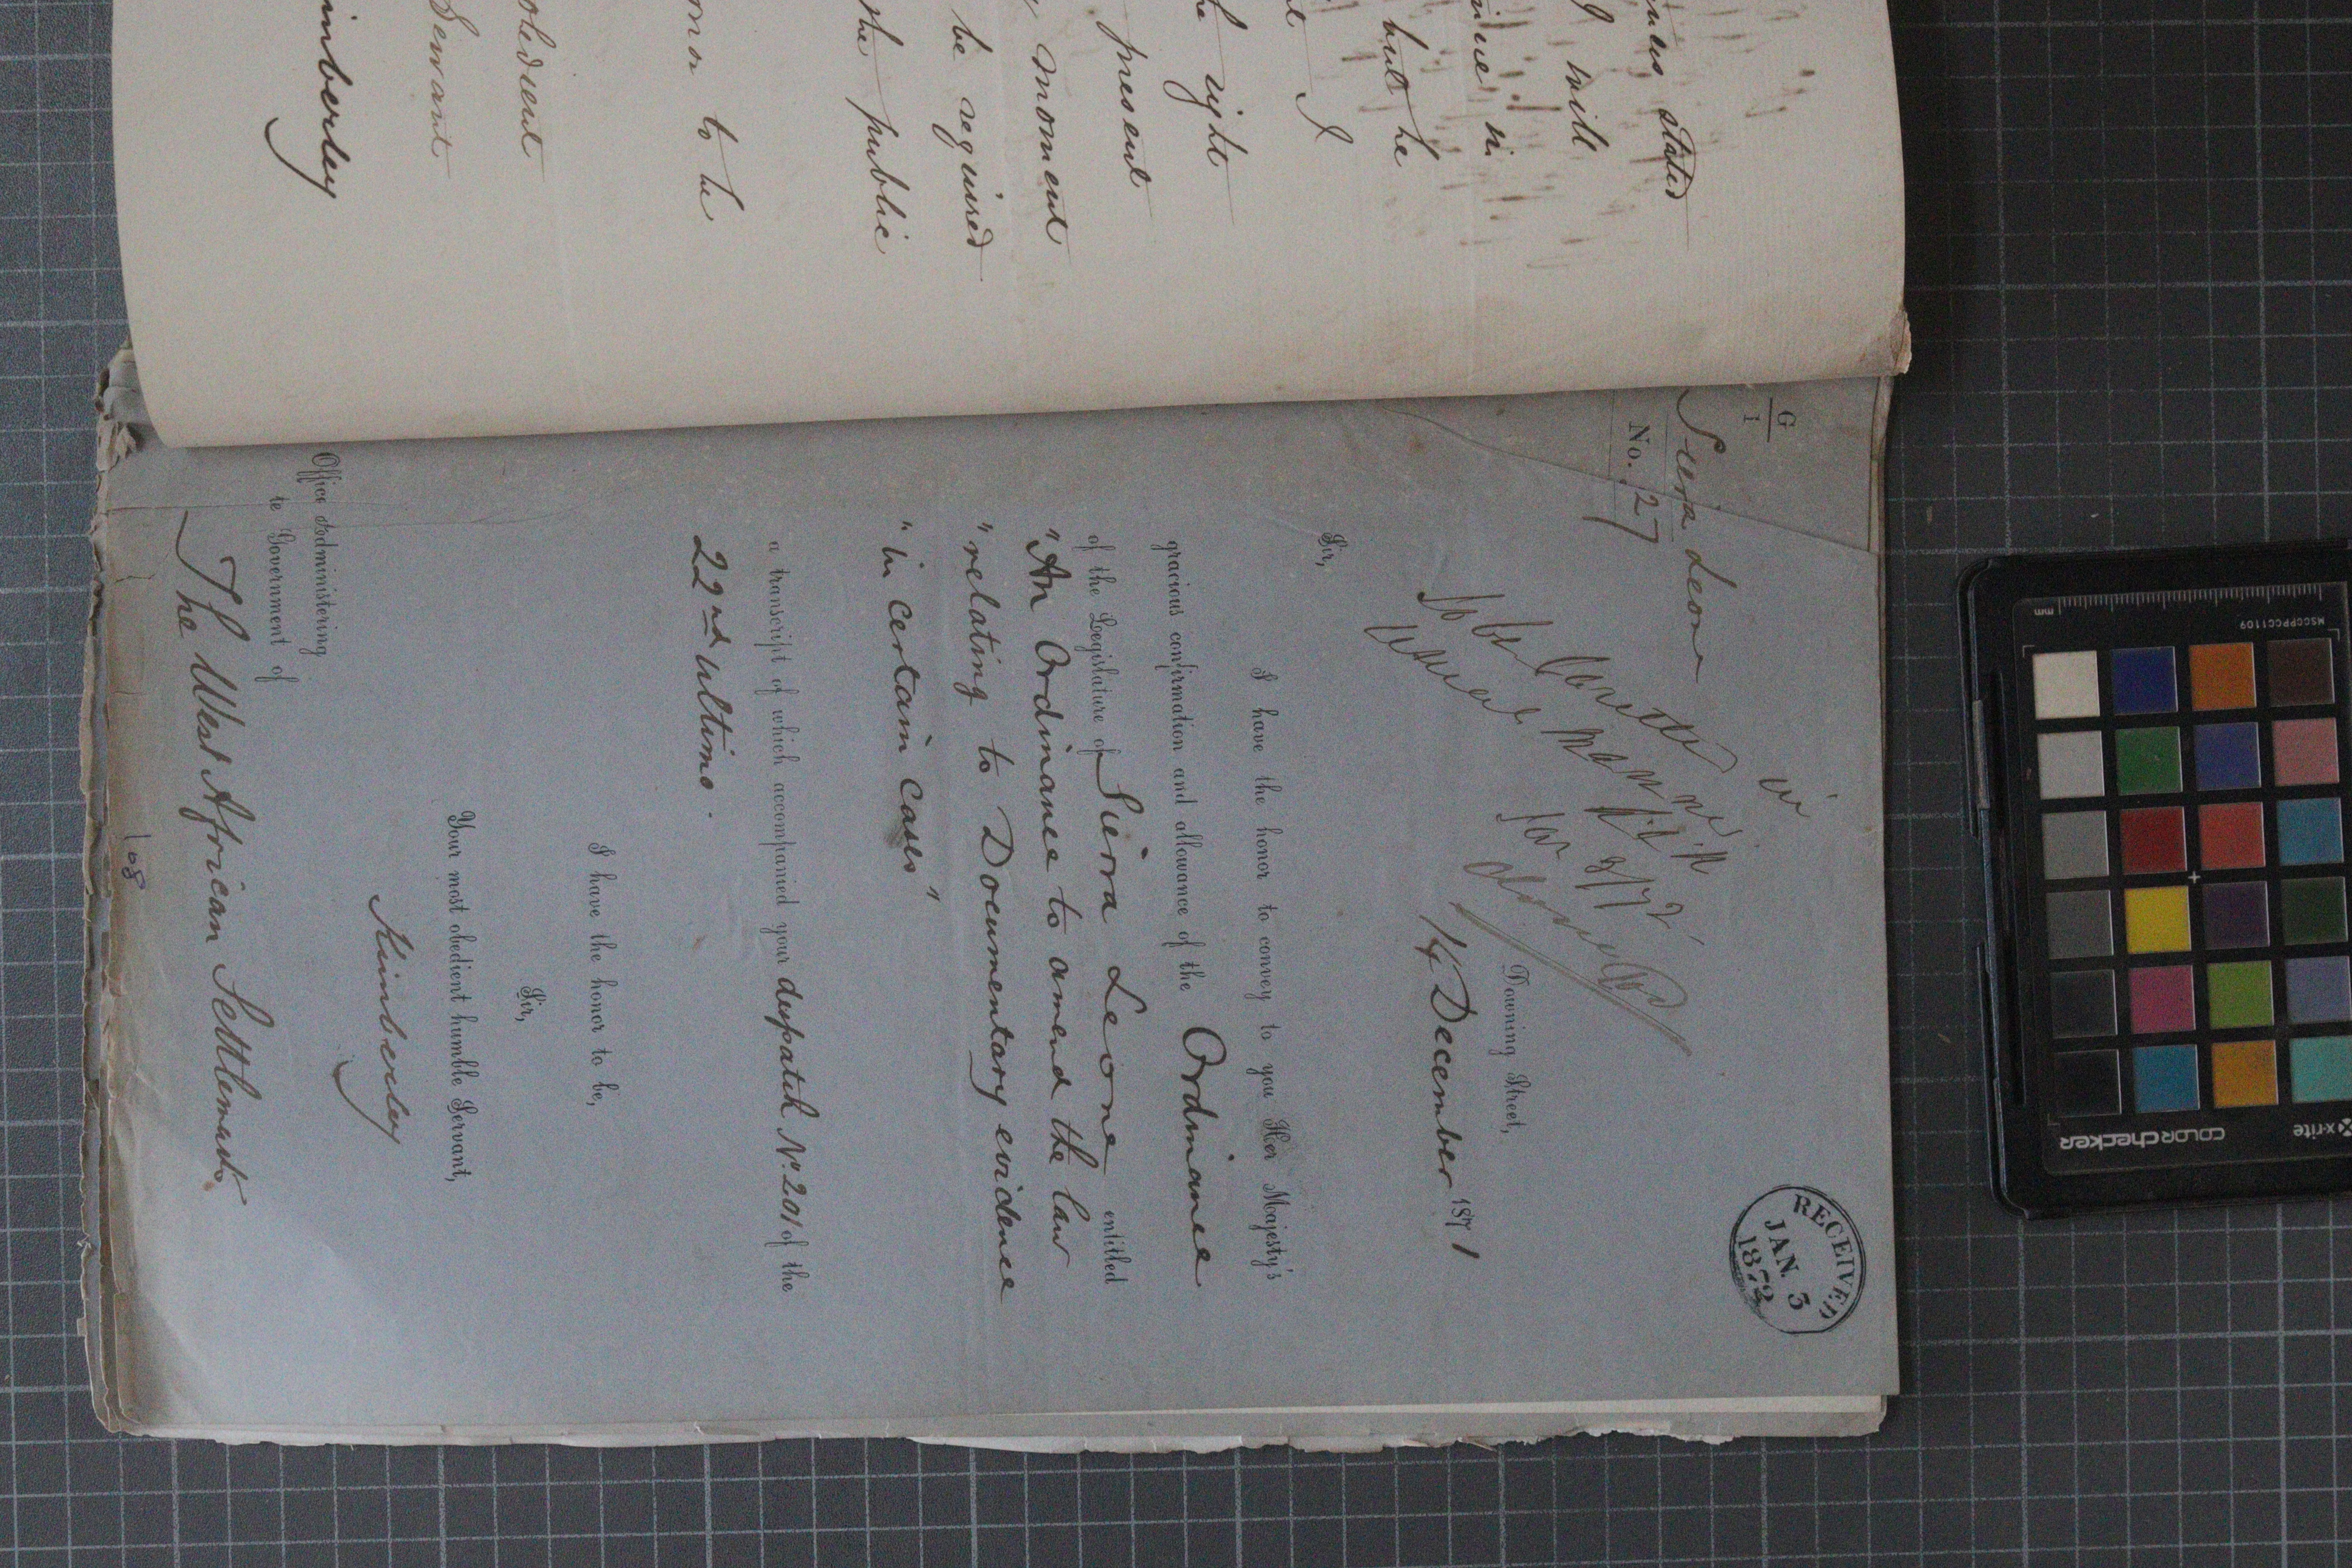 nces stated
I will
but he
I
he right
present
moment
be required
the public
nor to be
obedient
Servant
imberley
G
1
Sierra Leone
No. 27
RECEIVED
JAN. 3
1872
To be
usual manner
8/1/72
Downing Street,
14 December 1871
Sir,
I have the honor to convey to you Her Majesty's
gracious confirmation and allowance of the Ordinance
of the Legislature of Sierra Leone entitled
"An Ordinance to amend the law
"relating to Documentary evidence
"in certain cases"
a transcript of which accompanied your despatch No. 201 of the
22nd ultimo.
I have the honor to be,
Sir,
Your most obedient humble Servant,
Kimberley
Office Administering
te Government of
The West African Settlements
108
mm
MSCCPPCC1109
x-rite
COLORchecker